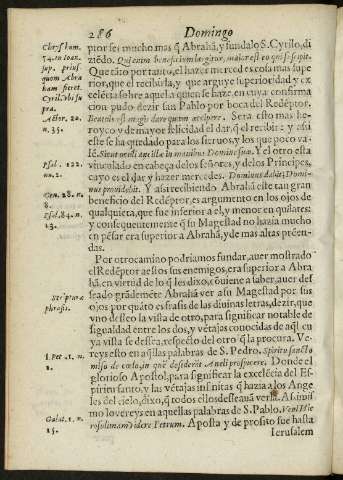 286 Domingo
Chrysost. hom.
74. in Ioan.
sup. prius-
quam Abra
ham fieret.
Cyril. ibi su
pra.
Actor. 20.
n. 35.
Psal. 122.
nu. 2.
Gen. 28. n.
8.
Psal. 84. n.
13.
Scriptura
phrasis.
1. Pet. 1. n.
2.
Galat. 1. n.
15.
ptor ser mucho mas q̃ Abrahã, y fundalo S. Cyrilo, di
ziẽdo. Qui enim beneficium largitur, maior est eo qui suscipit.
Que tãto por tanto, el hazer merced es cosa mas supe
rior, que el recibirla, y que arguye superioridad y ex
celẽcia sobre aquel a quien se haze. en cuya confirma
cion pudo dezir san Pablo por boca del Redẽptor.
Beatius est magis dare quam accipere. Sera esto mas he-
royco y de mayor felicidad el dar, q̃ el recibir: y assi
este se ha quedado para los sieruos, y los que poco va-
lẽ. Sicut oculi ancillæ in manibus Dominæ suæ. Y el otro està
vinculado en cabeça de los señores, y de los Principes,
cayo es el dar, y hazer mercedes. Dominus dabit; Domi-
nus prouidebit. Y assi recibiendo Abrahã este tan gran
beneficio del Redẽptor, es argumento en los ojos de
qualquiera, que fue inferior a el, y menor en quilates:
y consequentemente q̃ su Magestad no haziamucho
en pẽsar era superior a Abrahã, y de mas altas prẽen-
das.
Por otro camino podriamos fundar, auer mostrado
el Redẽptor a estos sus enemigos, era superior a Abra
hã, en virtud de lo q̃ les dixo, cõuiene a saber, auer def
seado grãdemẽte Abrahã ver a su Magestad por sus
ojos: por quãto es frasis de las diuinas letras, dezir, que
vno desseo la vista de otro, para significar notable de
sigualdad entre los dos, y vẽtajas conocidas de aq̃l cu
ya vista se dessea, respecto del otro q̃ la procura. Ve-
reys esto en aq̃llas palabras de S. Pedro. Spiritu sancto
misso de cœlo, in quẽ desiderãt Angeli prospicere. Donde el
glorioso Apostol, para significar la excelẽcia del Es-
piritu santo, y las vẽtajas infinitas q̃ hazia a los Ange
les del cielo, dixo, q̃ todos ellos desseauã verla. Assimis
mo lo vereys en aquellas palabras de S. Pablo. Veni Hie
rosolimam videre Petrum. Aposta y de proposito fue hasta
Ierusalem